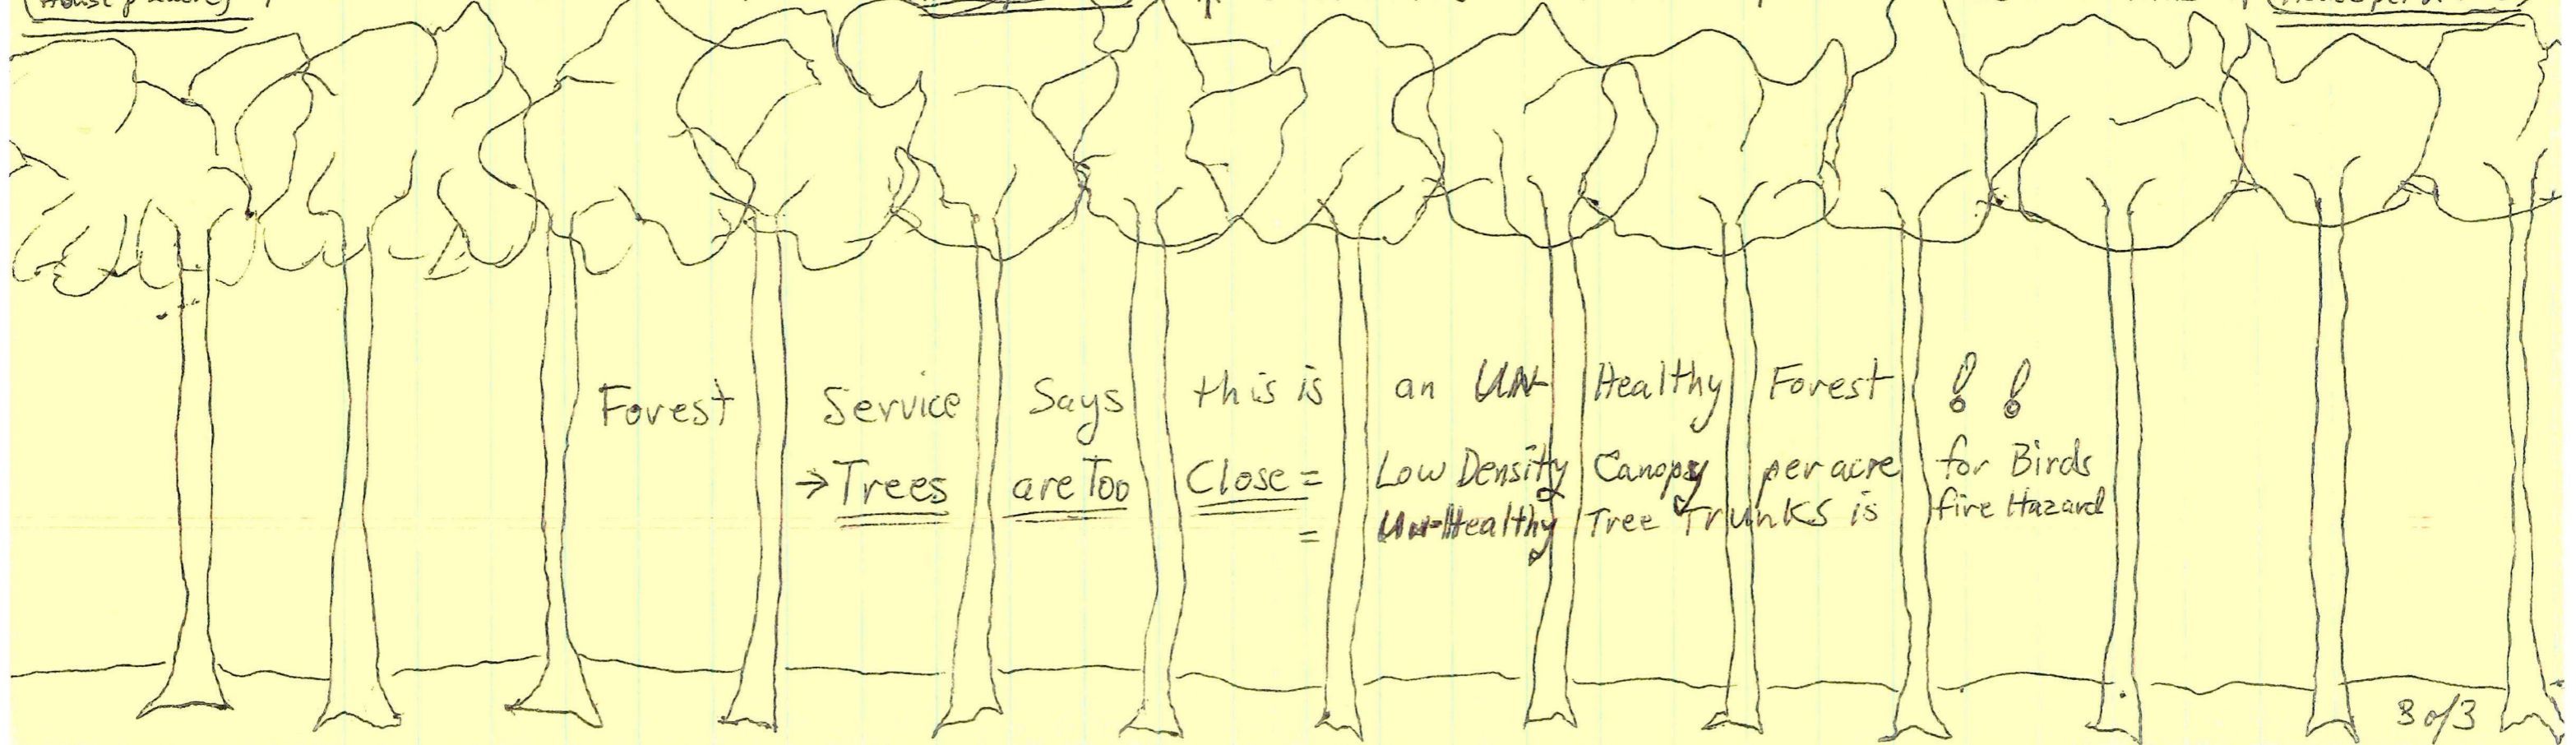 Forest Service Says this is an UN- Healthy Forest !!
→ Trees are Too Close = Low Density Canopy per acre for Birds
= Un-Healthy Tree Trunks is fire Hazard
3 of 3